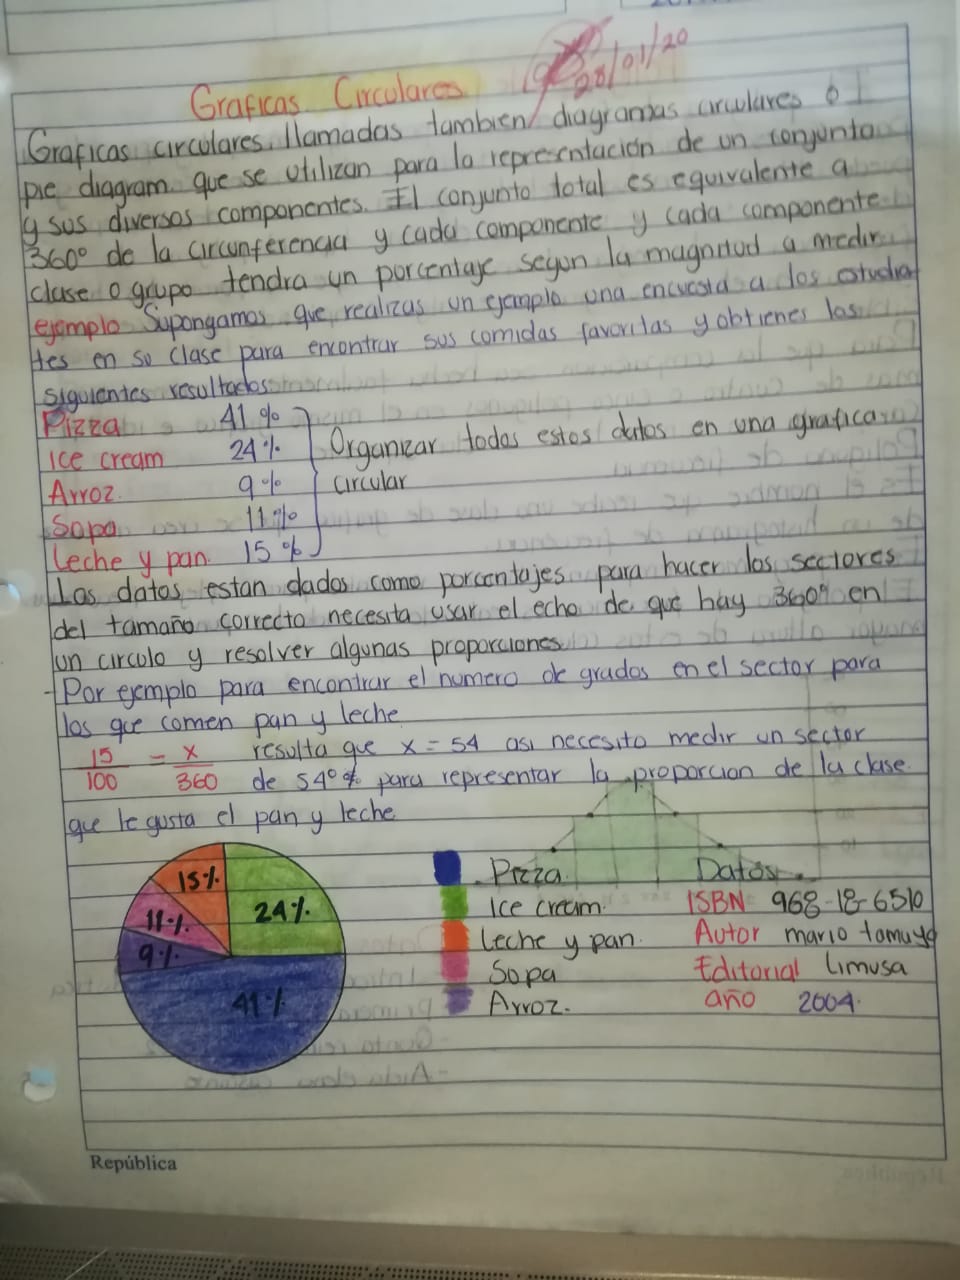 28/01/20
Graficas Circulares
Graficas circulares llamadas tambien diagramas circulares ó
pie diagram que se utilizan para la representación de un conjunto
y sus diversos componentes. El conjunto total es equivalente a
360° de la circunferencia y cada componente y cada componente
clase o grupo tendra un porcentaje segun la magnitud a medir.
ejemplo Supongamos que realizas un ejemplo una encuesta a los estudian
tes en su clase para encontrar sus comidas favoritas y obtienes los
siguientes resultados
Pizza 41%
Ice cream 24%
Arroz. 9%
Sopa 11%
Leche y pan. 15%
Organizar todos estos datos en una grafica
circular
Los datos estan dados como porcentajes para hacer los sectores
del tamaño correcto necesita usar el echo de que hay 360° en
un circulo y resolver algunas proporciones
-Por ejemplo para encontrar el numero de grados en el sector para
los que comen pan y leche
15/100 = x/360 resulta que x = 54 asi necesito medir un sector
de 54°% para representar la proporcion de la clase
que le gusta el pan y leche
15%
24%
11%
9%
41%
Pizza.
Ice cream.
Leche y pan.
Sopa
Arroz.
Datos
ISBN 968-18-6510
Autor mario tamayo
Editorial Limusa
año 2004.
República